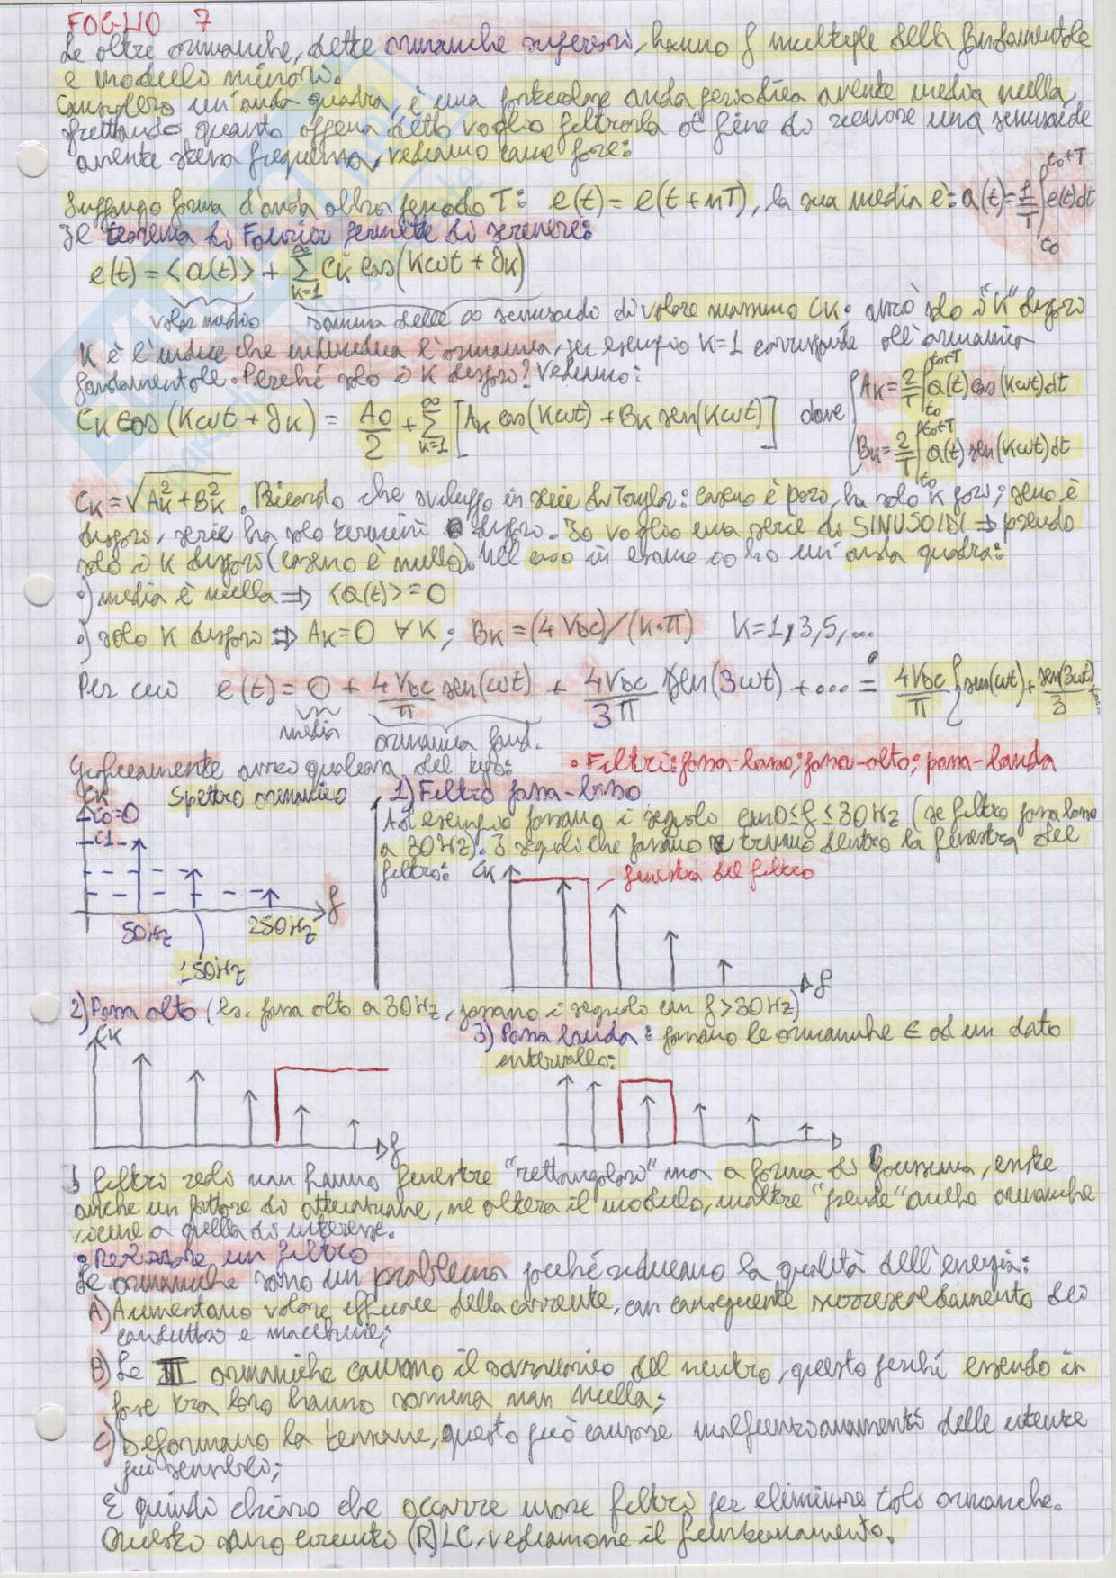 FOGLIO 7
Le altre armoniche, dette armoniche superiori, hanno f multiple della fondamentale
e moduli minori.
Considero un'onda quadra, è una particolare onda periodica avente media nulla,
sfruttando quanto appena detto voglio filtrarla al fine di ricavare una sinusoide
avente stessa frequenza, vediamo come fare:
Suppongo forma d'onda abbia periodo T: e(t) = e(t+nT), la sua media è: a(t)= 1/T ∫ e(t)dt
t0+T
t0
Il teorema di Fourier permette di scrivere:
e(t) = <a(t)> + ∑ CK cos(Kωt + δK)
∞
K=1
valor medio somma delle ∞ sinusoidi di valore massimo CK. avrò solo i "K" dispari
K è l'indice che individua l'armonica, per esempio K=1 corrisponde all'armonica
fondamentale. Perché solo i K dispari? Vediamo:
CK cos(Kωt + δK) = A0/2 + ∑ [AK cos(Kωt) + BK sen(Kωt)] dove
∞
K=1
AK = 2/T ∫ a(t) cos(Kωt)dt
t0+T
t0
BK = 2/T ∫ a(t) sen(Kωt)dt
t0+T
t0
CK = √AK² + BK². Ricordo che sviluppo in serie di Taylor: coseno è pari, ha solo K pari; seno è
dispari, serie ha solo termini dispari. Io voglio una serie di SINUSOIDI ⇒ prendo
solo i K dispari (coseno è nullo). Nel caso in esame io ho un'onda quadra:
•) media è nulla ⇒ <a(t)> = 0
•) solo K dispari ⇒ AK = 0 ∀ K; BK = (4 VDC)/(K·π) K=1,3,5,...
Per cui e(t) = 0 + 4VDC/π sen(ωt) + 4VDC/3π sen(3ωt) + .... = 4VDC/π { sen(ωt) + sen(3ωt)/3
media armonica fond.
Graficamente avrò qualcosa del tipo: • Filtri: passa-basso; passa-alto; passa-banda
CK Spettro armonico
C0=0
C1
f
50Hz 250Hz
150Hz
1) Filtro passa-basso
Ad esempio passano i segnali con 0≤f≤30Hz (se filtro passa basso
a 30Hz). I segnali che passano si trovano dentro la finestra del
filtro: CK finestra del filtro
f
2) Passa alto (Es. passa alto a 30Hz, passano i segnali con f>30Hz)
CK
f
3) Passa banda: passano le armoniche ∈ ad un dato
intervallo:
I filtri reali non hanno finestre "rettangolari" ma a forma di Gaussiana, esiste
anche un fattore di attenuazione, ne altera il modulo, inoltre "prende" anche armoniche
vicine a quella di interesse.
• Realizzare un filtro
Le armoniche sono un problema perché riducono la qualità dell'energia:
A) Aumentano valore efficace della corrente, con conseguente surriscaldamento dei
conduttori e macchine;
B) Le III armoniche causano il sovraccarico del neutro, questo perché essendo in
fase tra loro hanno somma non nulla;
C) Deformano la tensione, questo può causare malfunzionamenti delle utenze
più sensibili;
È quindi chiaro che occorre usare filtri per eliminare tali armoniche.
Questi sono circuiti (R)LC, vediamone il funzionamento.